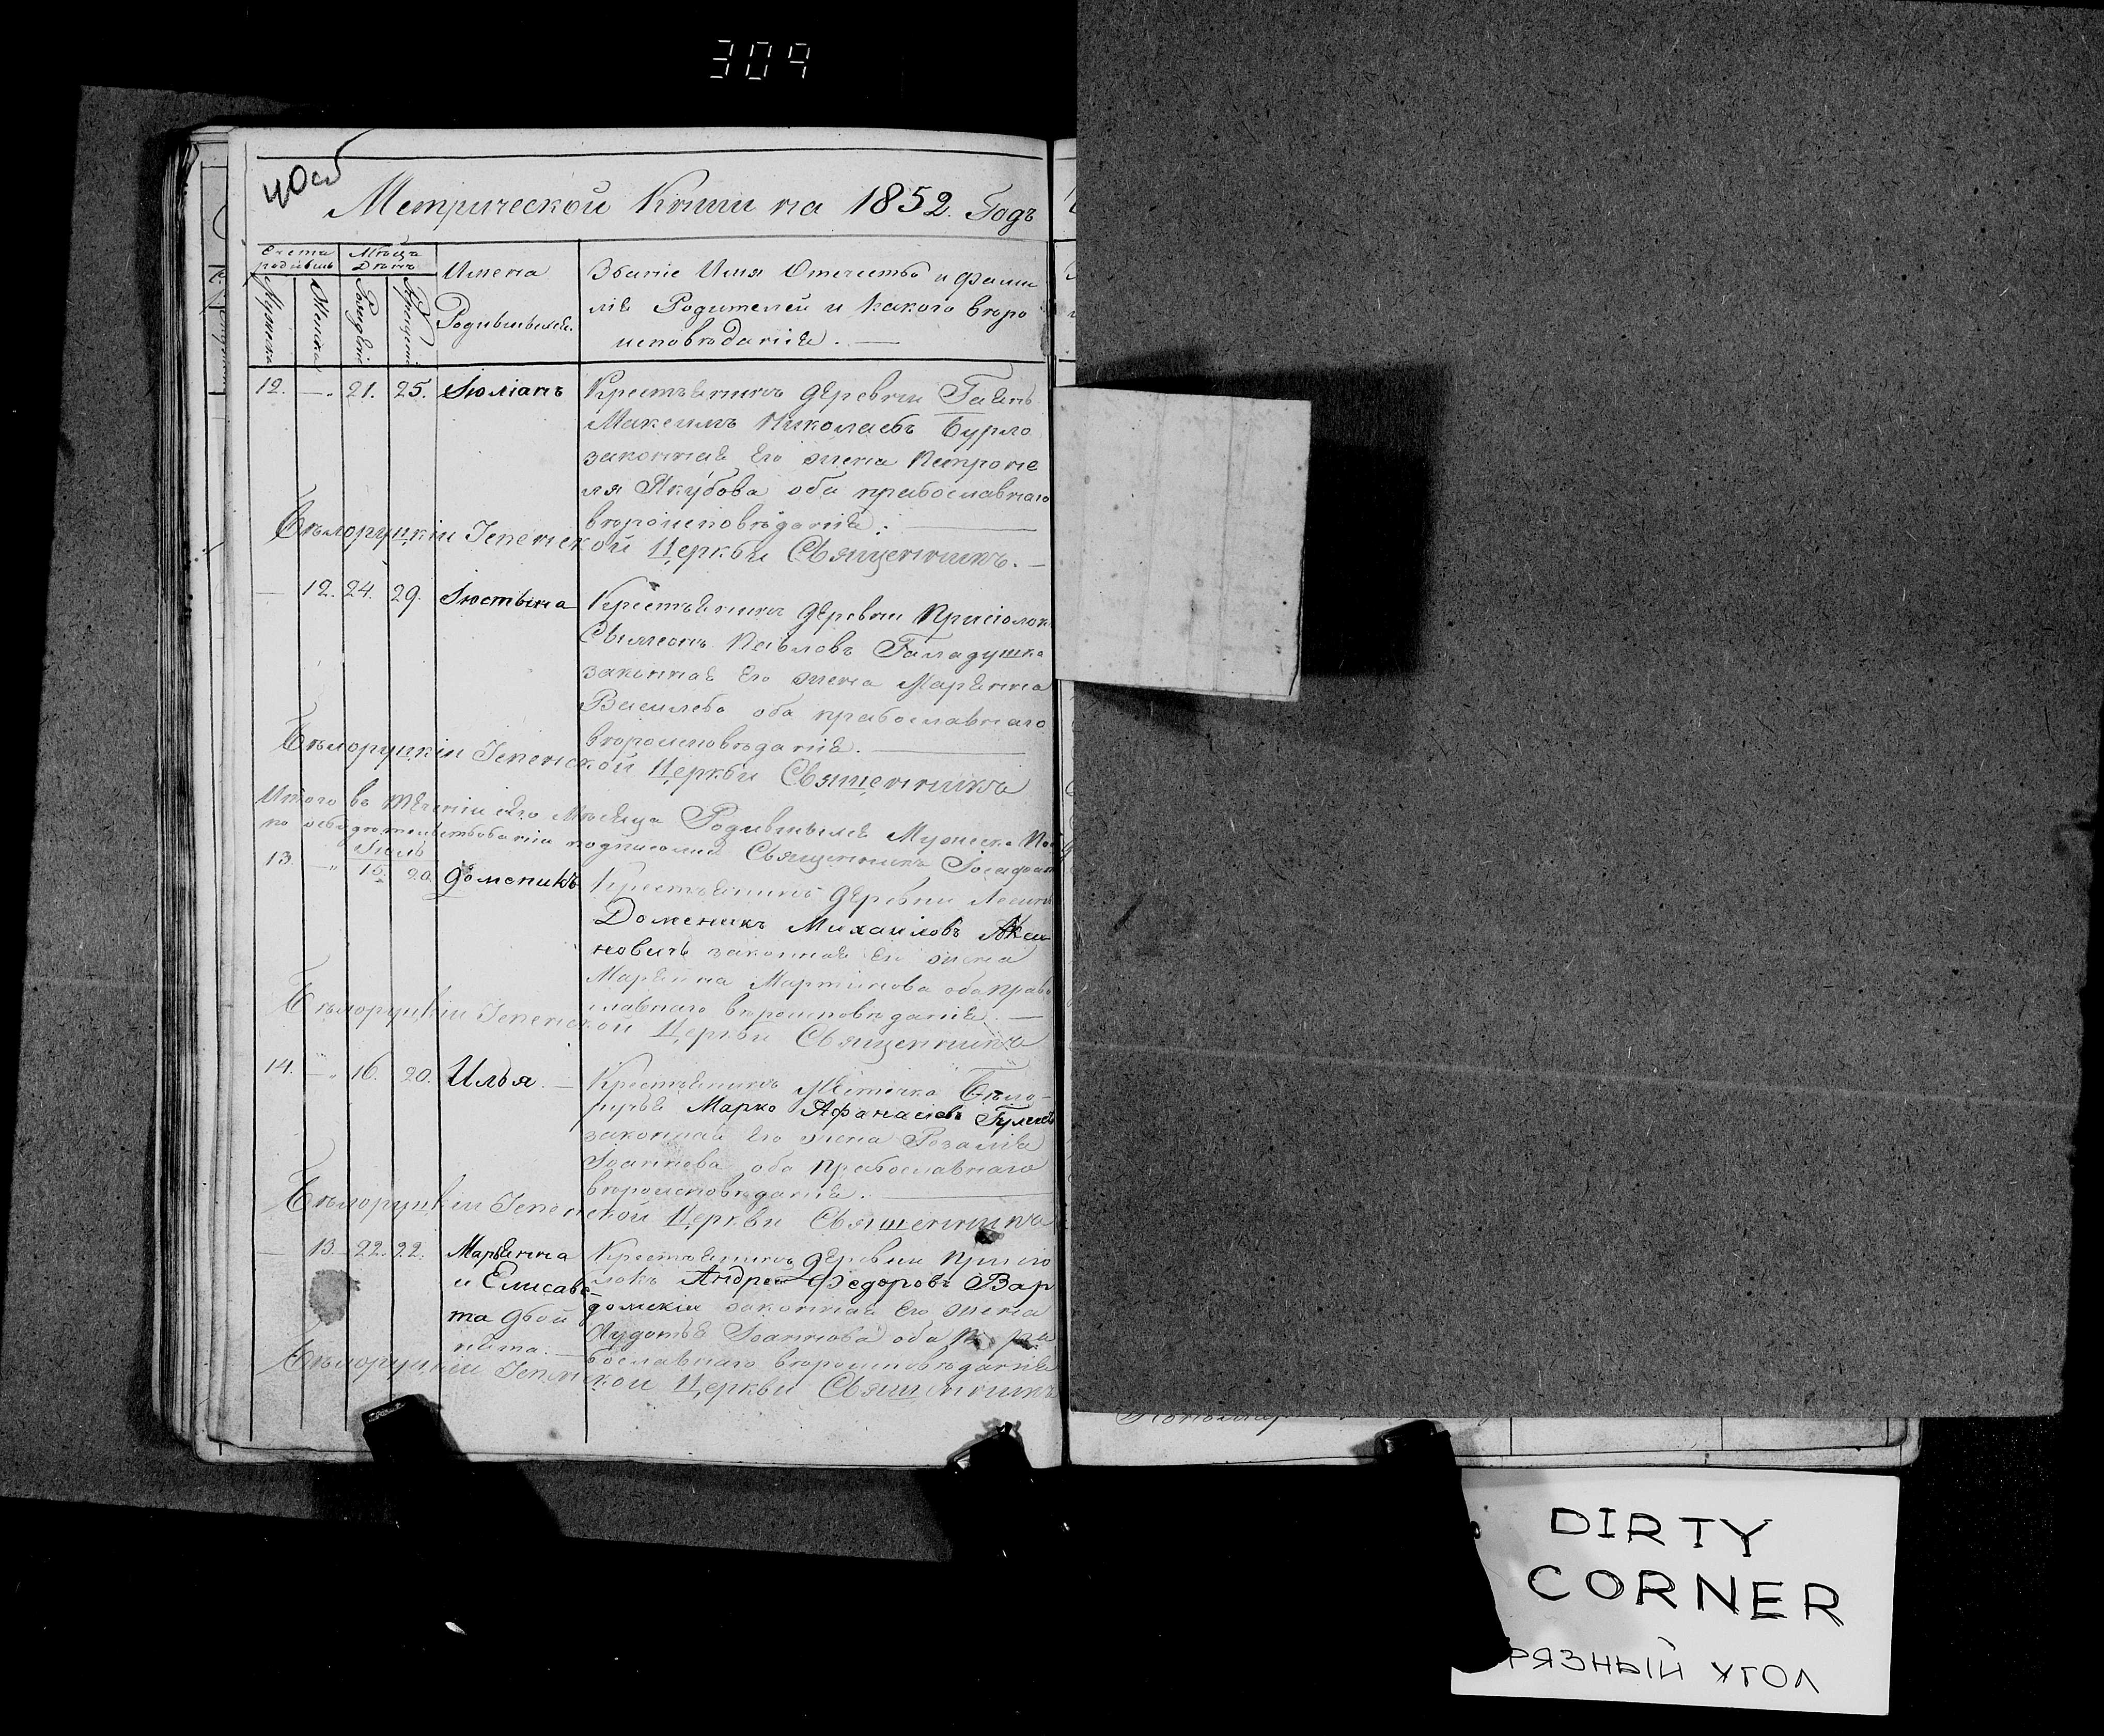 309
40 об
Метрической Книги на 1852. Годъ
Счета родившъ
Мѣсяца День
Мужеска
Женска
Рожденія
Крещенія
Имена
Родившыхся.
Званіе Имя Отечество и Фами
лія Родителей и какого вѣро
исповѣданія. —
12. — „ 21. 25. Іюліанъ
Крестьянинъ деревни Гаянь
Максимъ Николаевъ Бурло
законная Его жена Петроне
ля Якубова оба православнаго
вѣроисповѣданія. —
Бѣлоруцкіи Іепенской Церкви Священникъ. —
— 12. 24. 29. Іюстына
Крестьянинъ деревни Прыіолок
Сымеонъ Павловъ Галадушка
законная Его жена Марьянна
Васильева оба православнаго
вѣроисповѣданія. —
Бѣлоруцкіи Іепенской Церкви Священникъ
Итого въ теченіи сего Мѣсяца Родившыхся Мужеска По
по освидетельствованіи подписалися Священникъ
Іюль
13. — „ 15. 20. Доменикъ
Крестьянинъ деревни
Доменикъ Михаиловъ Акси
новичъ законная Его жена
Марьянна Мартинова оба право
славнаго вѣроисповѣданія. —
Бѣлоруцкіи Іепенской Церкви Священника
14. — „ 16. 20. Илья. —
Крестьянинъ Мѣстечка Бѣло-
ручья Марко Афанасіевъ
законная Его жена Розалія
Іоаннова оба Православнаго
вѣроисповѣданія. —
Бѣлоруцкіи Іепенской Церкви Священника
— 13. 22. 22. Марьянна
и Елисаве-
та двой
нята. —
Крестьянинъ деревни Прысіо
локъ Андрей Федоровъ Вар
домскіи законная Его жена
Іоаннова оба пра
вославнаго вѣроисповѣданія
Бѣлоруцкіи Іепенской Церкви Священникъ
DIRTY
CORNER
РЯЗНЫЙ УГОЛ